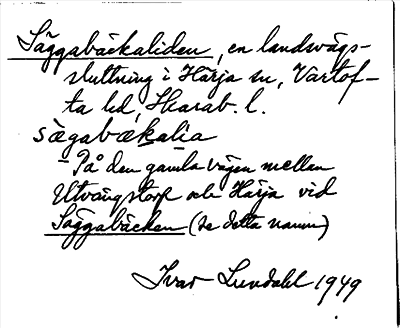 Säggabäckaliden, en landsvägs-
sluttning i Härja sn, Vartof-
ta hd, Skarab. l.
sägabækalia
- På den gamla vägen mellan
Utvängstorp och Härja vid
Säggabäcken (se detta namn)
Ivar Lundahl 1949